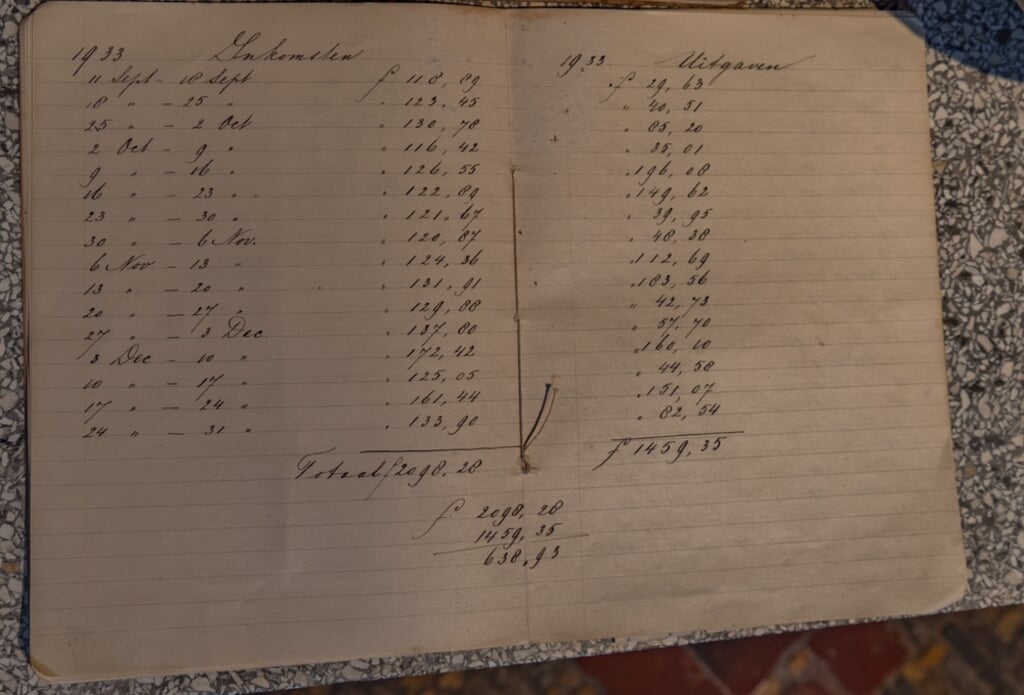 1933 Inkomsten
11 Sept - 18 Sept f 118,89
18 " - 25 " " 123,45
25 " - 2 Oct " 130,78
2 Oct - 9 " " 116,42
9 " - 16 " " 126,55
16 " - 23 " " 122,89
23 " - 30 " " 121,67
30 " - 6 Nov. " 120,87
6 Nov - 13 " " 124,36
13 " - 20 " " 131,91
20 " - 27 " " 129,88
27 " - 3 Dec. " 137,80
3 Dec - 10 " " 172,42
10 " - 17 " " 125,05
17 " - 24 " " 161,44
24 " - 31 " " 133,90
Totaal f 2098,28
1933 Uitgaven
f 29,63
" 40,51
" 85,20
" 35,01
" 196,08
" 149,62
" 39,95
" 48,38
" 112,69
" 183,56
" 42,73
" 57,70
" 160,10
" 44,58
" 151,07
" 82,54
f 1459,35
f 2098,28
1459,35
638,93